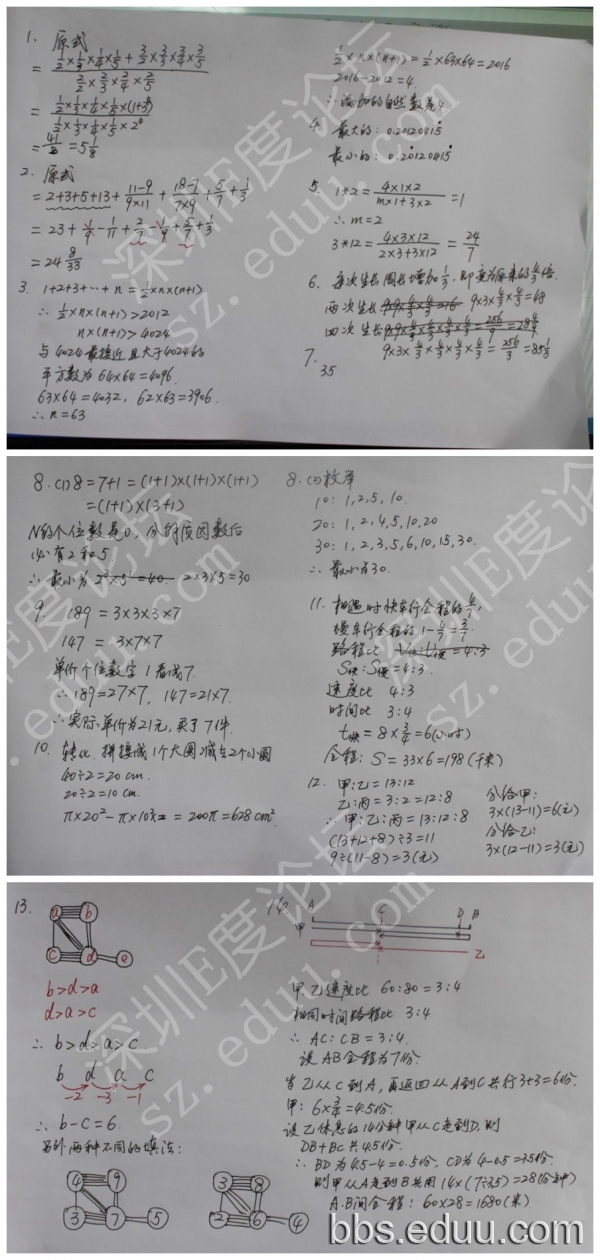 1. 原式
= (1/2×1/3×1/4×1/5 + 3/2×3/3×3/4×3/5) / (2/2×2/3×2/4×2/5)
= (1/2×1/3×1/4×1/5×(1+3⁴)) / (1/2×1/3×1/4×1/5×2⁴)
= 41/8 = 5 1/8
2. 原式
= 2+3+5+13 + (11-9)/(9×11) + (18-7)/(7×9) + 5/7 + 1/3
= 23 + 1/9 - 1/11 + 2/7 - 1/9 + 5/7 + 1/3
= 24 8/33
3. 1+2+3+…+n = 1/2×n×(n+1)
∴ 1/2×n×(n+1) > 2012
n×(n+1) > 4024
与4024最接近且大于4024的
平方数为 64×64=4096.
63×64=4032, 62×63=3906.
∴ n=63
1/2×n×(n+1) = 1/2×63×64 = 2016
2016-2012=4.
∴ 漏加的自然数是4.
4. 最大的: 0.20120415
最小的: 0.20120415
5. 1*2 = (4×1×2)/(m×1+3×2) = 1
∴ m=2
3*12 = (4×3×12)/(2×3+3×12) = 24/7
6. 每次生长周长增加1/3, 即变为原来的4/3倍.
两次生长 9×3×4/3×4/3=48
四次生长
9×3×4/3×4/3×4/3×4/3 = 256/3 = 85 1/3
7. 35
8. (1) 8=7+1=(1+1)×(1+1)×(1+1)
=(1+1)×(3+1)
N的个位数是0, 分解质因数后
必有2和5
∴ 最小为 2³×5¹=40 2×3×5=30
9. 189=3×3×3×7
147= 3×7×7
单价个位数字1看成7.
∴ 189=27×7, 147=21×7.
∴ 实际单价为21元, 买了7件.
10. 转化. 拼接成1个大圆减去2个小圆
40÷2=20 cm.
20÷2=10 cm.
π×20²-π×10²×2=200π=628cm².
8. (2) 枚举
10: 1,2,5,10.
20: 1,2,4,5,10,20
30: 1,2,3,5,6,10,15,30.
∴ 最小为30.
11. 相遇时快车行全程的4/7,
慢车行全程的 1-4/7=3/7.
路程比
S快:S慢=4:3.
速度比 4:3
时间比 3:4
t快=8×3/4=6(小时)
全程: S=33×6=198(千米)
12. 甲:乙=13:12
乙:丙=3:2=12:8
∴ 甲:乙:丙=13:12:8
(13+12+8)÷3=11
9÷(11-8)=3(元)
分给甲:
3×(13-11)=6(元)
分给乙:
3×(12-11)=3(元)
13.
a b
c d e
b>d>a
d>a>c
∴ b>d>a>c
b d a c
-2 -3 -1
∴ b-c=6.
另外两种不同的填法:
4 9
3 7 5
3 8
2 6 4
14.
A C D B
甲
乙
甲乙速度比 60:80=3:4
相同时间路程比 3:4
∴ AC:CB=3:4.
设AB全程为7份.
当乙从C到A, 再返回从A到C共行3+3=6份.
甲: 6×3/4=4.5份.
设乙休息的14分钟甲从C走到D, 则
DB+BC共4.5份.
∴ BD为4.5-4=0.5份, CD为4-0.5=3.5份.
则甲从A走到B共用14×(7÷3.5)=28(分钟)
A.B间全程: 60×28=1680(米)
深圳E度论坛
sz.eduu.com
bbs.eduu.com